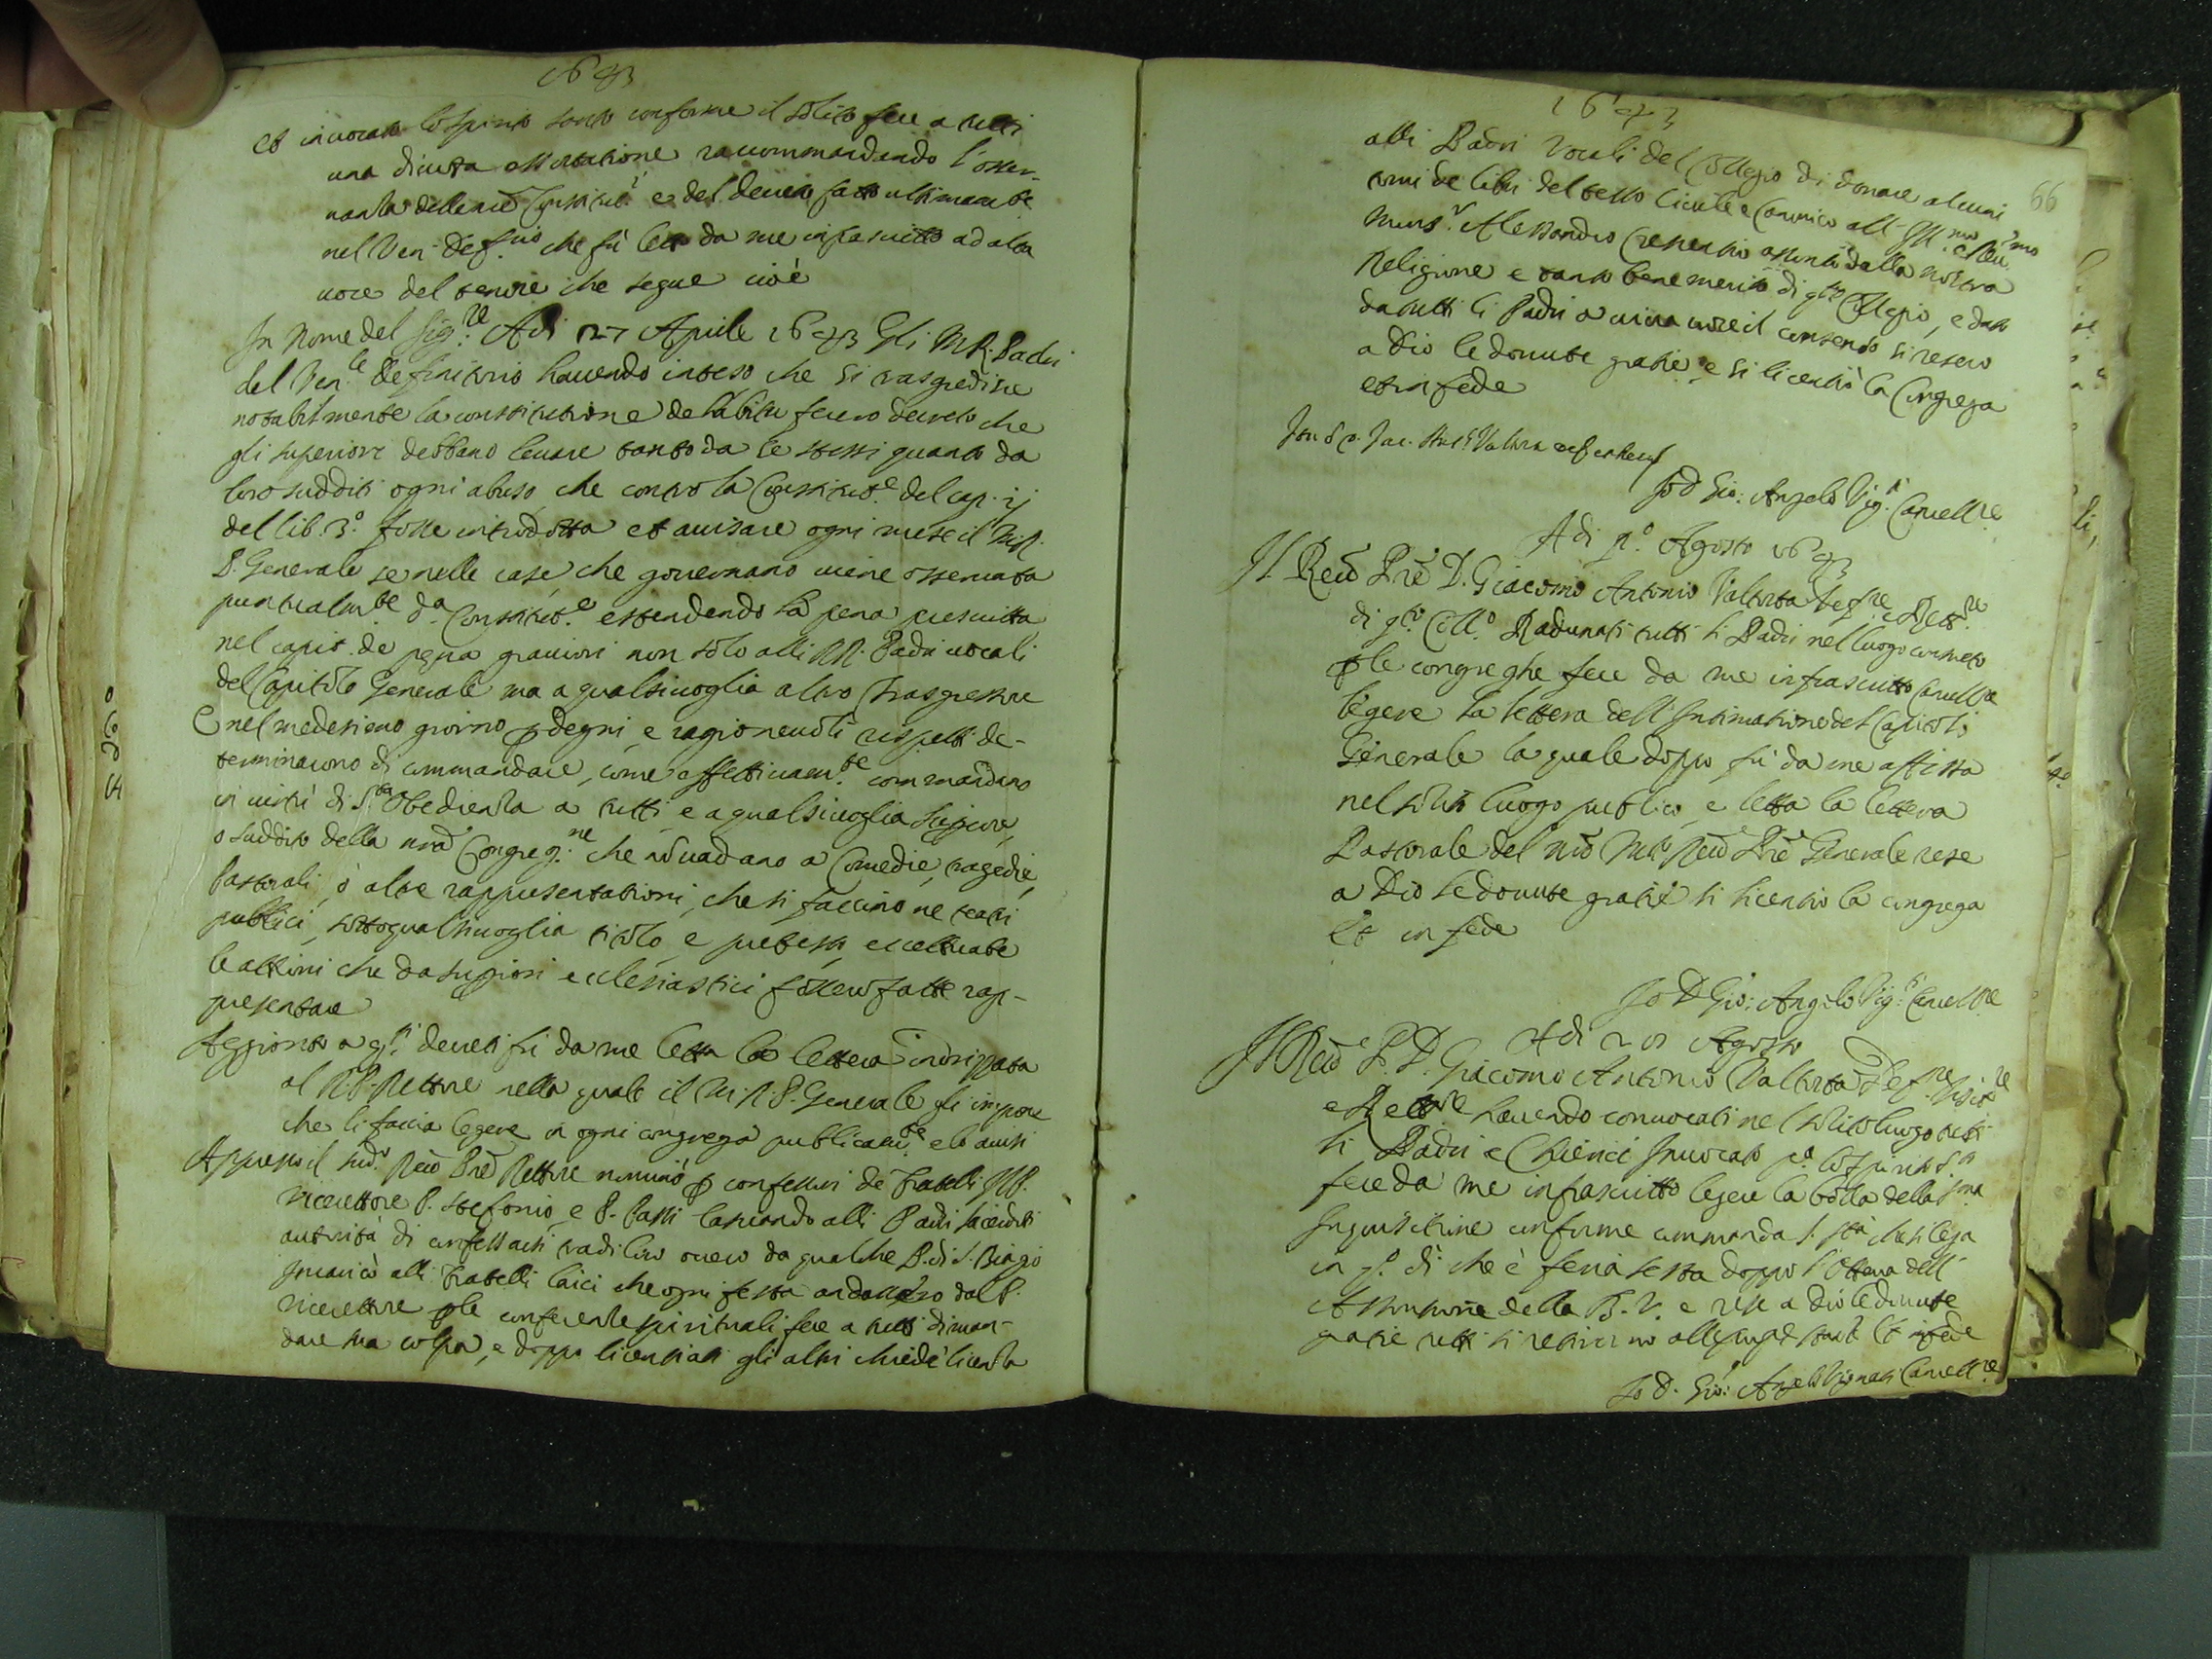 1643
et invocato lo Spirito santo conforme il solito fece a tutti
una divota essortatione raccommandando l'osser-
vanza delle nře Constitut.i e del decreto fatto ultimam.te
nel Ven. Def.rio che fù letto da me infrascritto ad alta
voce del tenore che segue cioè
In Nome del Sig.re Adi 27 Aprile 1643 Gli M.R. Padri
del Ven.le Definitorio havendo inteso che si trasgredisce
notabilmente la constitutione de habitu fecero decreto che
gli superiori debbano levare tanto da se stessi quanto da
loro sudditi ogni abuso che contro la Constitut.e del cap. ij
del lib. 3.o fosse introdotta et avisare ogni mese il M.R.
P. Generale se nelle case che governano viene osservata
puntualm.te d.a Constitut.e estendendo la pena prescritta
nel capit. de pęna graviori non solo alli RR. Padri vocali
del Capitolo Generale ma a qualsivoglia altro trasgressore
E nel medesimo giorno p degni e ragionevoli rispetti de-
terminarono di commandare, come effettivam.te commandano
in virtù di S.ta Obedienza a tutti e a qualsivoglia Superiore,
o suddito della nrã Congreg.ne che nõ vadano a Comedie, tragedie,
Pastorali, ò altre rappresentationi, che si faccino ne teatri
publici, sotto qual sivoglia titolo e pretesto, eccettuate
le attioni che da superiori ecclesiastici fossero fatte rap-
presentare
Aggionto a q.ti decreti fù da me letta la lettera indrizzata
al R.P. Rettore nella quale il M.R.P. Generale gli impone
che li faccia legere in ogni congrega publicam.te e lo avisi
Appresso il sud.o Reũ Prẽ Rettore nominò p confessori de Fratelli il P.
Vicerettore P. Stefonio, e P. Passi lasciando alli Padri sacerdoti
autorità di confessarsi tra di loro overo da qualche P. di S. Biagio
Incaricò alli Fratelli laici che ogni festa andassero dal P.
Vicerettore p le conferenze spirituali fece a tutti diman-
dare sua colpa, e doppo licentiati gli altri chiede licenza
1643
66
alli Padri Vocali del Collegio di donare alcuni
tomi de libri del testo Civile e Canonico all' Ill.mo e Rev.mo
Mons.r Alessandro Crescentio assunto dalla nostra
Religione e tanto bene merito di q.to Collegio, e dato
da tutti li Padri a viva voce il consenso si resero
a Dio le dovute gratie e si licentiò la Congrega
et in fede
Adi p.o Agosto 1643
Io D. Gio: Angelo Vig.ti Cancell.re
Il Reũ Prẽ D. Giacomo Antonio Valtorta Def.re e Rett.re
di q.to Coll.o Radunati tutti li Padri nel luogo consueto
p le congreghe fece da me infrascritto Cancell.re
legere la lettera dell' Intimatione del Capitolo
Generale la quale doppo fù da me affissa
nel solito luogo publico, e letta la lettera
Pastorale del nrõ M.to Reũ Prẽ Generale rese
a Dio le dovute gratie si licentiò la congrega
Et in fede
Io D. Gio: Angelo Vig.ti Cancell.re
Adi Agosto
Il Reũ P. D. Giacomo Antonio Valtorta Def.re Visit.re
e Rettore havendo convocati nel solito luogo tutti
li Padri e Chierici Invocato p.a lo Spirito S.to
fece da me infrascritto legere la bolla della S.ma
Inquisitione conforme commanda S. S.tà che si lega
in q.o di che è feria sesta doppo l'Ottava dell'
Assuntione della B.V. e rese a Dio le dovute
gratie tutti si ritirarono Et in fede
Io D. Gio: Angelo Vignati Cancell.re